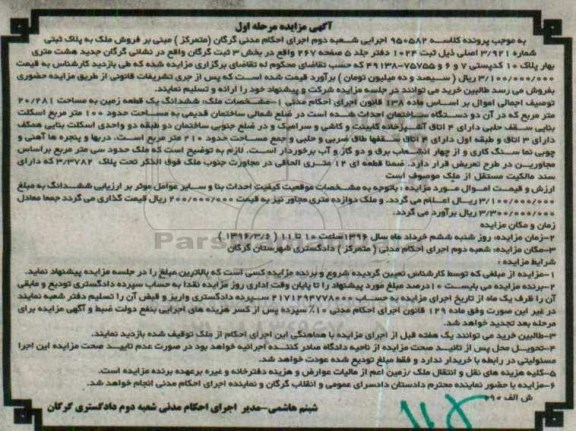 آگهی مزایده مرحله اول
به موجب پرونده کلاسه ۹۵۰۵۸۲ اجرایی شعبه دوم اجرای احکام مدنی گرگان (متمرکز) مبنی بر فروش ملک به پلاک ثبتی
شماره ۳/۹۲۱ اصلی ذیل ثبت ۱۰۲۴ دفتر جلد ۵ صفحه ۲۶۷ واقع در بخش ۳ ثبت گرگان واقع در نشانی گرگان جدید هشت متری
بهار پلاک ۱۰ کدپستی ۷ و ۶ و ۷۵۷۵۵-۴۹۱۳۸ که حسب تقاضای محکوم له تقاضای برگزاری مزایده شده که طی بازدید کارشناس به قیمت
۳/۱۰۰/۰۰۰/۰۰۰ ریال (سیصد و ده میلیون تومان) برآورد قیمت شده است که پس از جری تشریفات قانونی از طریق مزایده حضوری
بفروش می رسد طالبین خرید می توانند در جلسه مزایده شرکت و پیشنهاد خود را ارائه و تسلیم نمایند.
توصیف اجمالی اموال بر اساس ماده ۱۳۸ قانون اجرای احکام مدنی ۱-مشخصات ملک: ششدانگ یک قطعه زمین به مساحت ۲۰/۲۸۱
متر مربع که در آن دو دستگاه ساختمان احداث شده است در ضلع شمالی ساختمان قدیمی به مساحت حدود ۱۰۰ متر مربع اسکلت
بنایی سقف حلبی دارای ۲ اتاق آشپزخانه کابینت و کاشی و سرامیک و در ضلع جنوبی ساختمان دو طبقه دو واحدی اسکلت بنایی همکف
دارای ۳ اتاق و طبقه اول دارای ۴ اتاق سقفها طاق ضربی و حلبی و جمع مساحت حدود ۲۱۰ متر مربع است. دربها و پنجره ها آهنی و
چوبی نما سنگ کاری و از چهار انشعاب برق و دو گاز و آب برخوردار است. لازم به توضیح است که ملک حدود سی متر مربع براساس
مجاورین در طرح تعریض قرار دارد. ضمنا قطعه ای ۱۲ متری الحاقی در مجاورت جنوب ملک فوق الذکر تحت پلاک ۳/۳۷۸۲ که دارای
سند مالکیت مستقل از ملک موصوف است
ارزش و قیمت اموال مورد مزایده: باتوجه به مشخصات موقعیت کیفیت احداث بنا و سایر عوامل موثر بر ارزیابی ششدانگ به مبلغ
۳/۱۰۰/۰۰۰/۰۰۰ ریال اعلام می گردد. و ملک دوازده متری مجاور نیز به قیمت ۲۰۰/۰۰۰/۰۰۰ ریال قیمت گذاری می گردد جمعا معادل
۳/۳۰۰/۰۰۰/۰۰۰ ریال برآورد می گردد.
زمان و مکان مزایده
۲-زمان مزایده: روز شنبه ششم خرداد ماه سال ۱۳۹۶ ساعت ۱۰ تا ۱۱ ( ۱۳۹۶/۳/۶ )
۳-مکان مزایده: شعبه دوم اجرای احکام مدنی (متمرکز) دادگستری شهرستان گرگان
شرایط مزایده:
۱-مزایده از مبلغی که توسط کارشناس تعیین گردیده شروع و برنده مزایده کسی است که بالاترین مبلغ را در جلسه مزایده پیشنهاد نماید.
۲-برنده مزایده می بایست ۱۰درصد مبلغ مورد پیشنهاد را تا پایان وقت اداری روز مزایده نقدا به حساب سپرده دادگستری تودیع و مابقی
آن را ظرف یک ماه از تاریخ اجرای مزایده به حساب ۲۱۷۱۲۹۴۷۷۸۰۰۰ سپرده دادگستری واریز و قبض آن را تسلیم دفتر شعبه نمایند
در غیر این صورت وفق ماده ۱۲۹ قانون اجرای احکام مدنی ۱۰٪ سپرده پس از کسر هزینه های اجرایی بنفع دولت ضبط و آگهی مزایده برای
مرحله بعد تجدید خواهد شد.
۳-طالبین خرید می توانند یک هفته قبل از اجرای مزایده با هماهنگی این اجرای احکام از ملک توقیف شده بازدید نمایند.
۴-تحویل محل پس از تائید صحت مزایده از ناحیه دادگاه صادر کننده اجرائیه خواهد بود در صورت عدم تائید صحت مزایده این اجرا
مسئولیتی در رابطه با خریدار ندارد و فقط مبلغ تودیع شده عودت خواهد شد.
۵-کلیه هزینه های نقل و انتقال ملک /زمین اعم از مالیات عوارض و هزینه دفترخانه و غیره برعهده برنده مزایده است.
۶-مزایده با حضور نماینده محترم دادستان دادسرای عمومی و انقلاب گرگان و نماینده اجرای احکام مدنی انجام خواهد شد.
ش الف ۶۹۰
شبنم هاشمی-مدیر اجرای احکام مدنی شعبه دوم دادگستری گرگان